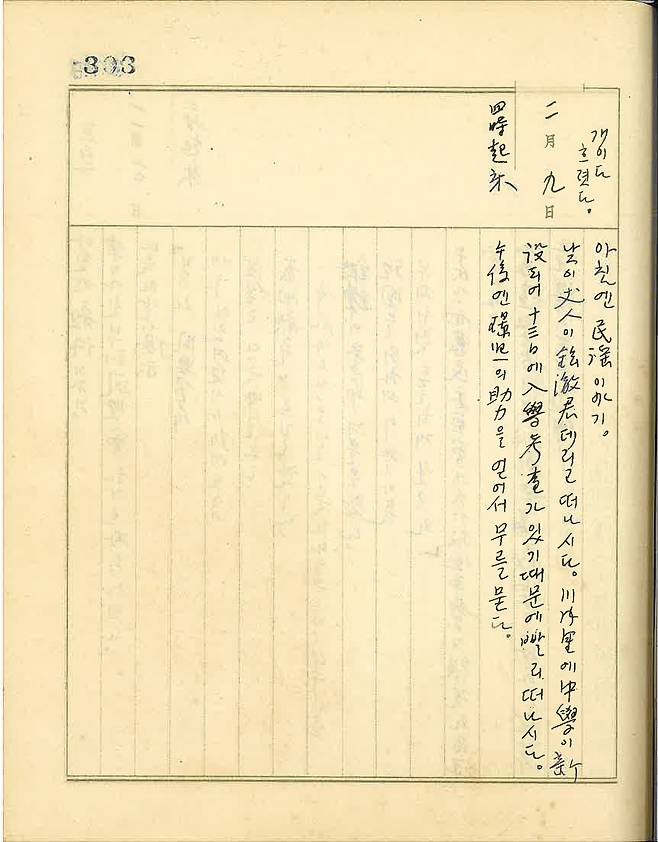 303
개이다
흐렷다。
二月九日
四時起床
아침엔 民謠 이야기。
낮이 丈人이 澈君 데리고 떠나시다。川內里에 中學이 新
設되어 十三日에 入學考査가 있기때문에 빨리 떠나시다。
午後엔 의 助力을 얻어서 무를 묻다。